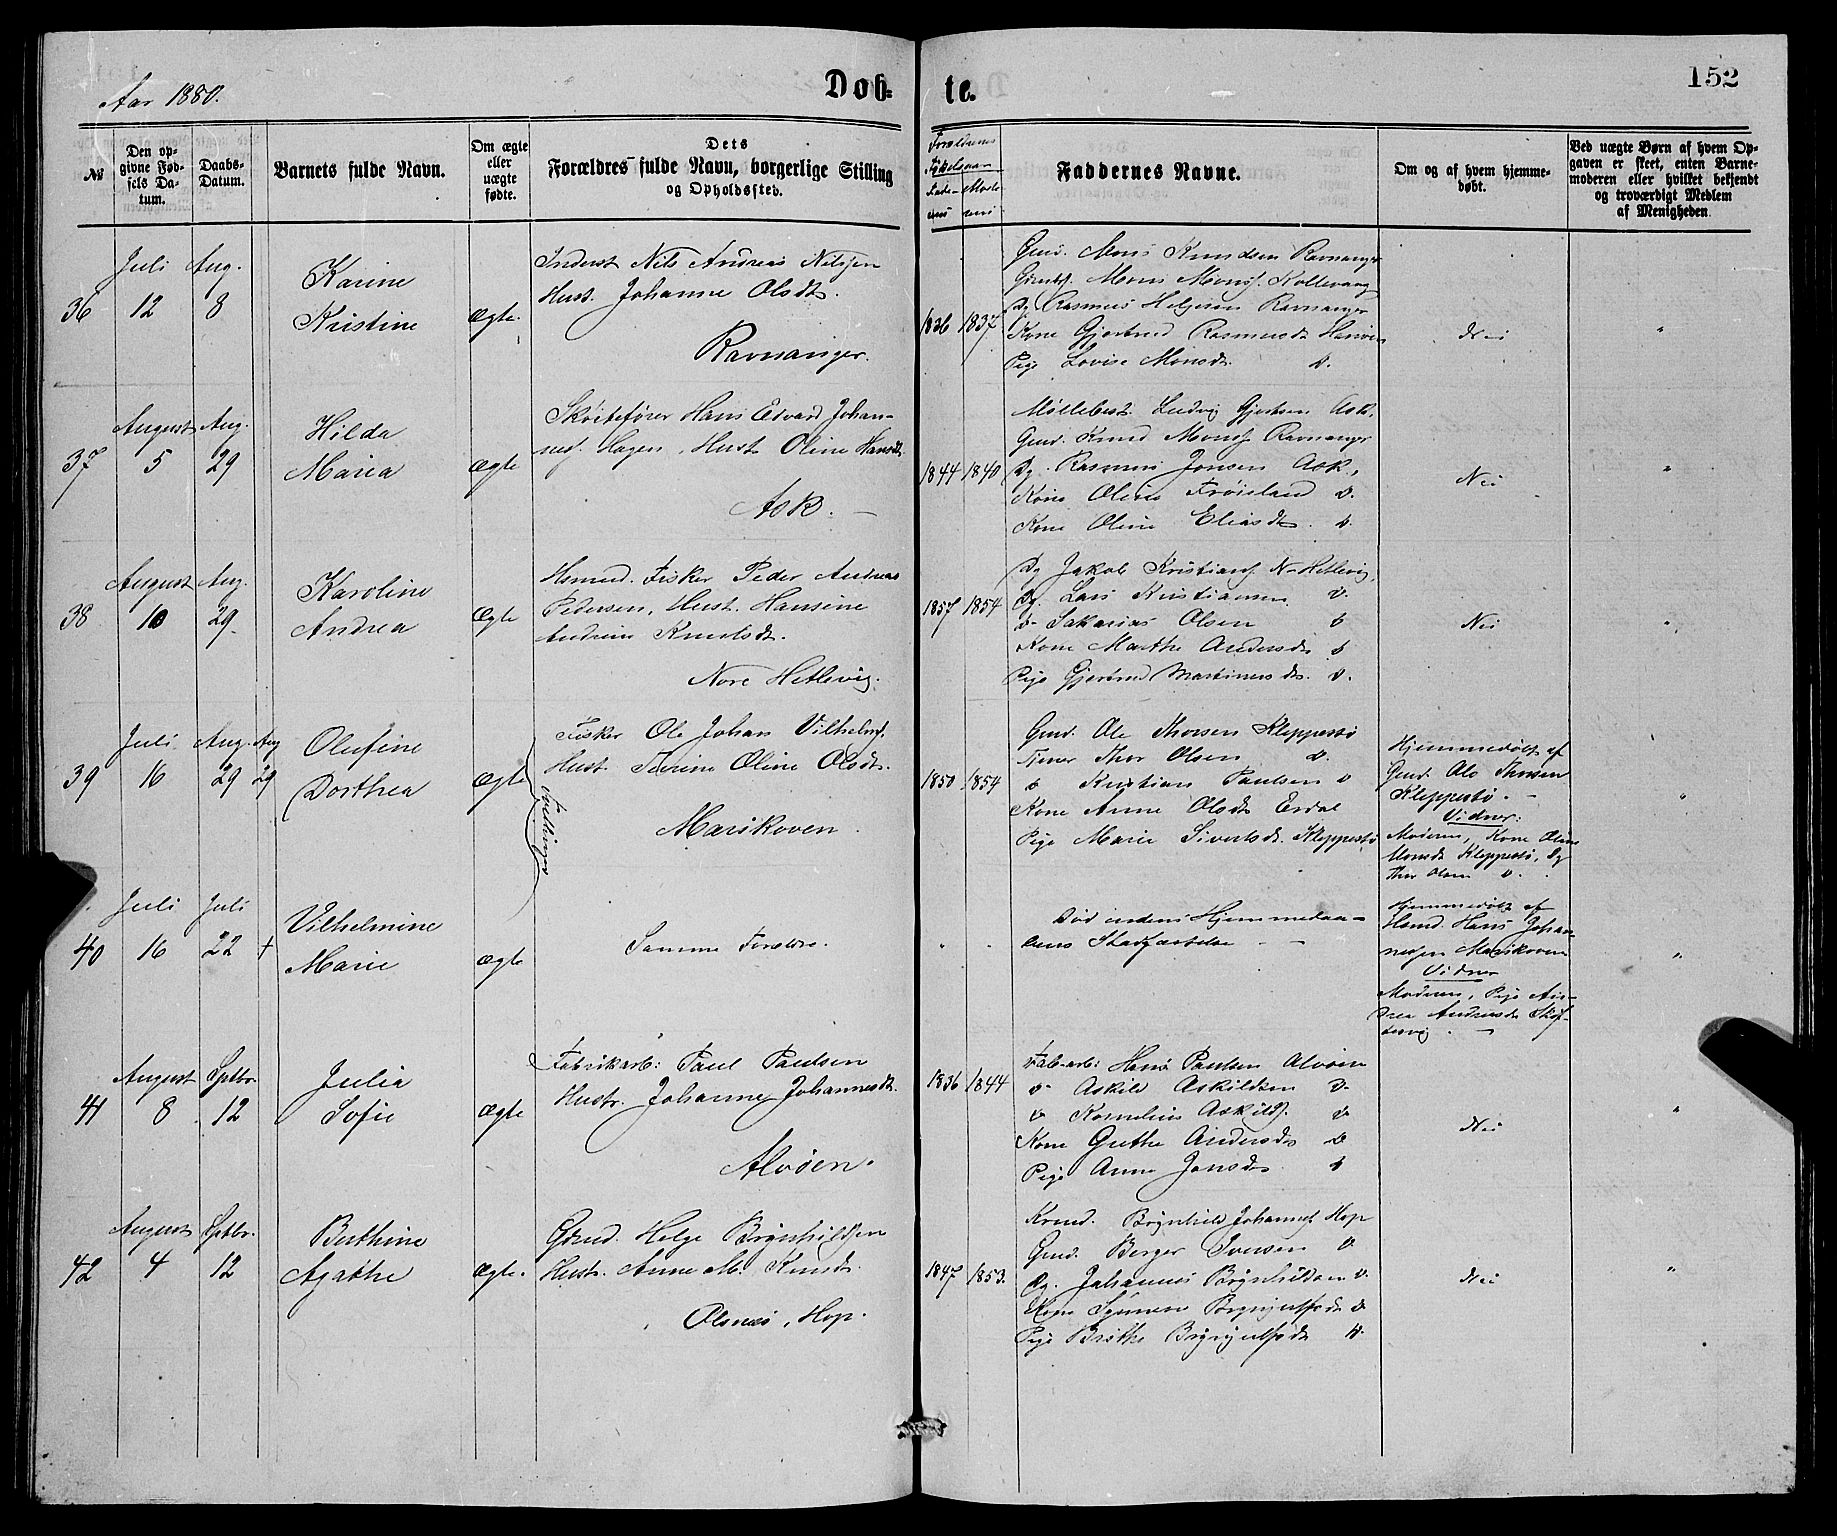 Aar 1880.
Døb-
te.
152
№
Den op-
givne Fød-
sels Da-
tum.
Daabs-
Datum.
Barnets fulde Navn.
Om ægte
eller
uægte
fødte.
Dets
Forældres fulde Navn, borgerlige Stilling
og Opholdssted.
Forældrenes
Fødselsaar
Fade- Mode-
rens rens
Faddernes Navne.
Om og af hvem hjemme-
døbt.
Ved uægte Børn af hvem Op-
gaven er skeet, enten Barne-
moderen eller hvilket bekjendt
og troværdigt Medlem
af Menigheden.
36
Juli
12
Aug.
8
Karine
Kristine
Ægte.
Inderst Nils Andreas Nilsen
Hust. Johanne Olsdt.
Ravnanger.
1836 1837
Gmd. Mons Knudsen Ravnanger
Gmd. Mons Monss. Kollevaag
Dg. Rasmus Helgesen Ravnanger
Kone Gjertrud Rasmusdt Hanven
Pige Lovise Monsdt. d.
Nei
"
37
August
5
Aug.
29
Hilda
Maria
Ægte
Skøitefører Hans Edvard Johan-
nes. Hagen, Hust. Oline Hansdt.
Ask. —
1844 1840
Møllebest. Ludvig Gjertsen Ask.
Gmd. Knud Monss Ravnanger
Dg. Rasmus Jonsen Ask.
Kone Oline Frøiland d.
Kone Oline Eliasdt. d.
Nei
"
38
August
10
Aug.
29.
Karoline
Andrea
Ægte
Hsmnd. Fisker Peder Andreas
Pedersen, Hust. Hansine
Andrine Knudsdt.
Nore Hetlevig.
1857 1854
Dg Jakob Kristians. N-Hetlevig,
Dg. Lars Kristiansen d.
d- Sakarias Olsen d
Kone Marthe Andersdt d
Pige Gjertrud Martinusdt. d.
Nei
"
39
Juli
16
Aug.
29
Aug
29
Olufine
Dorthea
Ægte
Tvillinger
Fisker Ole Johan Vilhelms.
Hust. Serine Oline Olsdt.
Marikoven.
1850 1854
Gmd. Ole Thorsen Kleppestø
Tjener Thor Olsen d.
d Kristian Paulsen d
Kone Anne Olsdt Erdal
Pige Marie Sivertsdt. Kleppestø
Hjemmedøbt af
Gmd. Ole Thorsen
Kleppestø. -
Vidner:
Moderen, Kone Oline
Monsdt Kleppestø, Dg
Thor Olsen d.
"
40
Juli
16
Juli
22
†
Vilhelmine
Marie
Ægte
Samme Forældre.
" "
Død inden Hjemmedaa-
bens Stadfæstelse —
Hjemmedøbt af
Hsmd. Hans Johan-
nesen Marikoven
Vidner
Moderen, Pige An-
drea Andersdt Skif-
tesvig. —
"
41
August
8
Sptbr.
12
Julia
Sofie
Ægte
Fabrikarb: Paul Paulsen
Hustr. Johanne Johannesdt.
Alvøen.
1836 1844
Fab-arb: Hans Paulsen Alvøen
d- Askild Askildsen d-
d Kornelius Askilds. d
Kone Grethe Andersdt d
Pige Anne Jonsdt. d
Nei
"
42
August
4
Sptbr.
12
Berthine
Agathe
Ægte.
Gbmd. Helge Brynhildsen
Hustr. Anne M. Knudsdt.
Olsnes, Hop.
1847 1853.
Kmd. Brynhild Johanness Hop
Gmd. Berger Iversen d
Dg. Johannes Brynhildsen d.
Kone Brynjulfsdt d
Pige Brithe Brynjulfsdt d.
Nei
"